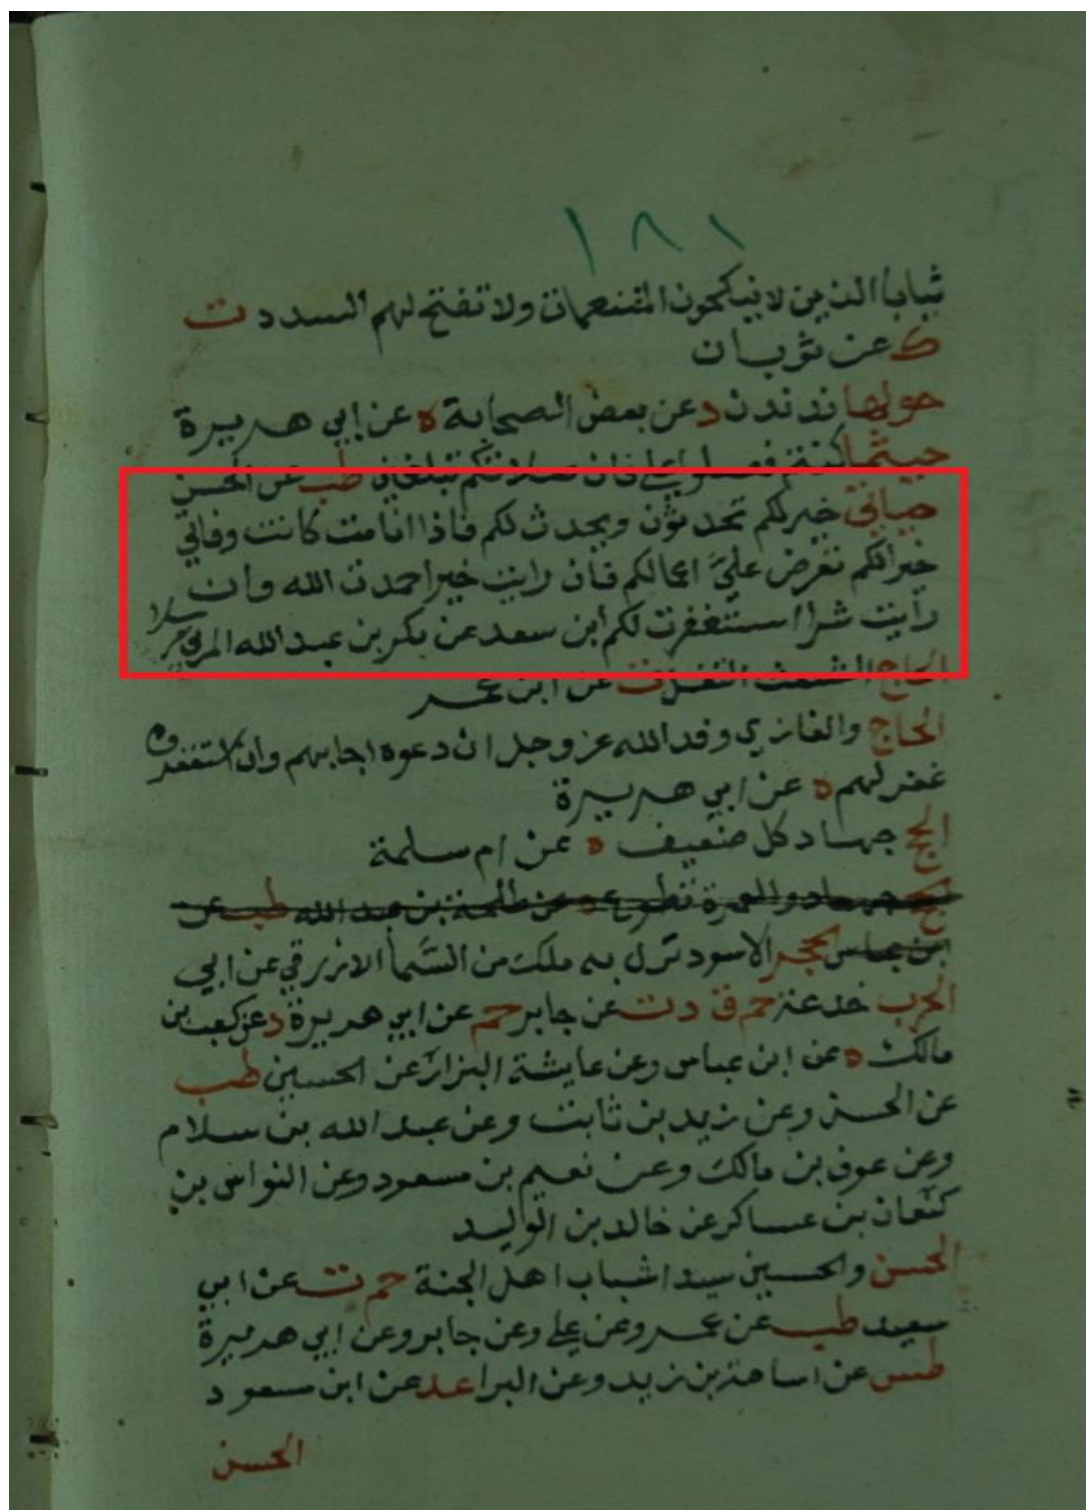 ١٨١
ثيابا الذين لا ينكحون المتنعمات ولا تفتح لهم السدد ت
ك عن ثوبان
حولها ندندن د عن بعض الصحابة ه عن ابي هريرة
حيثما كنتم فصلوا علي فان صلاتكم تبلغني طب عن الحسن
حياتي خير لكم تحدثون ويحدث لكم فاذا انا مت كانت وفاتي
خيرا لكم تعرض علي اعمالكم فان رايت خيرا حمدت الله وان
رايت شرا استغفرت لكم ابن سعد عن بكر بن عبد الله المزني مرسلا
الحاج الشعث التفل ت عن ابن عمر
الحاج والغازي وفد الله عز وجل ان دعوه اجابهم وان استغفروه
غفر لهم ه عن ابي هريرة
الحج جهاد كل ضعيف ه عن ام سلمة
الحج جهاد والعمرة تطوع ه عن طلحة بن عبد الله طب عن
ابن عباس الحجر الاسود نزل به ملك من السما الازرقي عن ابي
الحرب خدعة حم ق د ت عن جابر حم عن ابي هريرة د عن كعب بن
مالك ه عن ابن عباس وعن عايشة البزار عن الحسين طب
عن الحسن وعن زيد بن ثابت وعن عبد الله بن سلام
وعن عوف بن مالك وعن نعيم بن مسعود وعن النواس بن
كنعان بن عساكر عن خالد بن الوليد
الحسن والحسين سيدا شباب اهل الجنة حم ت عن ابي
سعيد طب عن عمر وعن علي وعن جابر وعن ابي هريرة
طس عن اسامة بن زيد وعن البرا عد عن ابن مسعود
الحسن